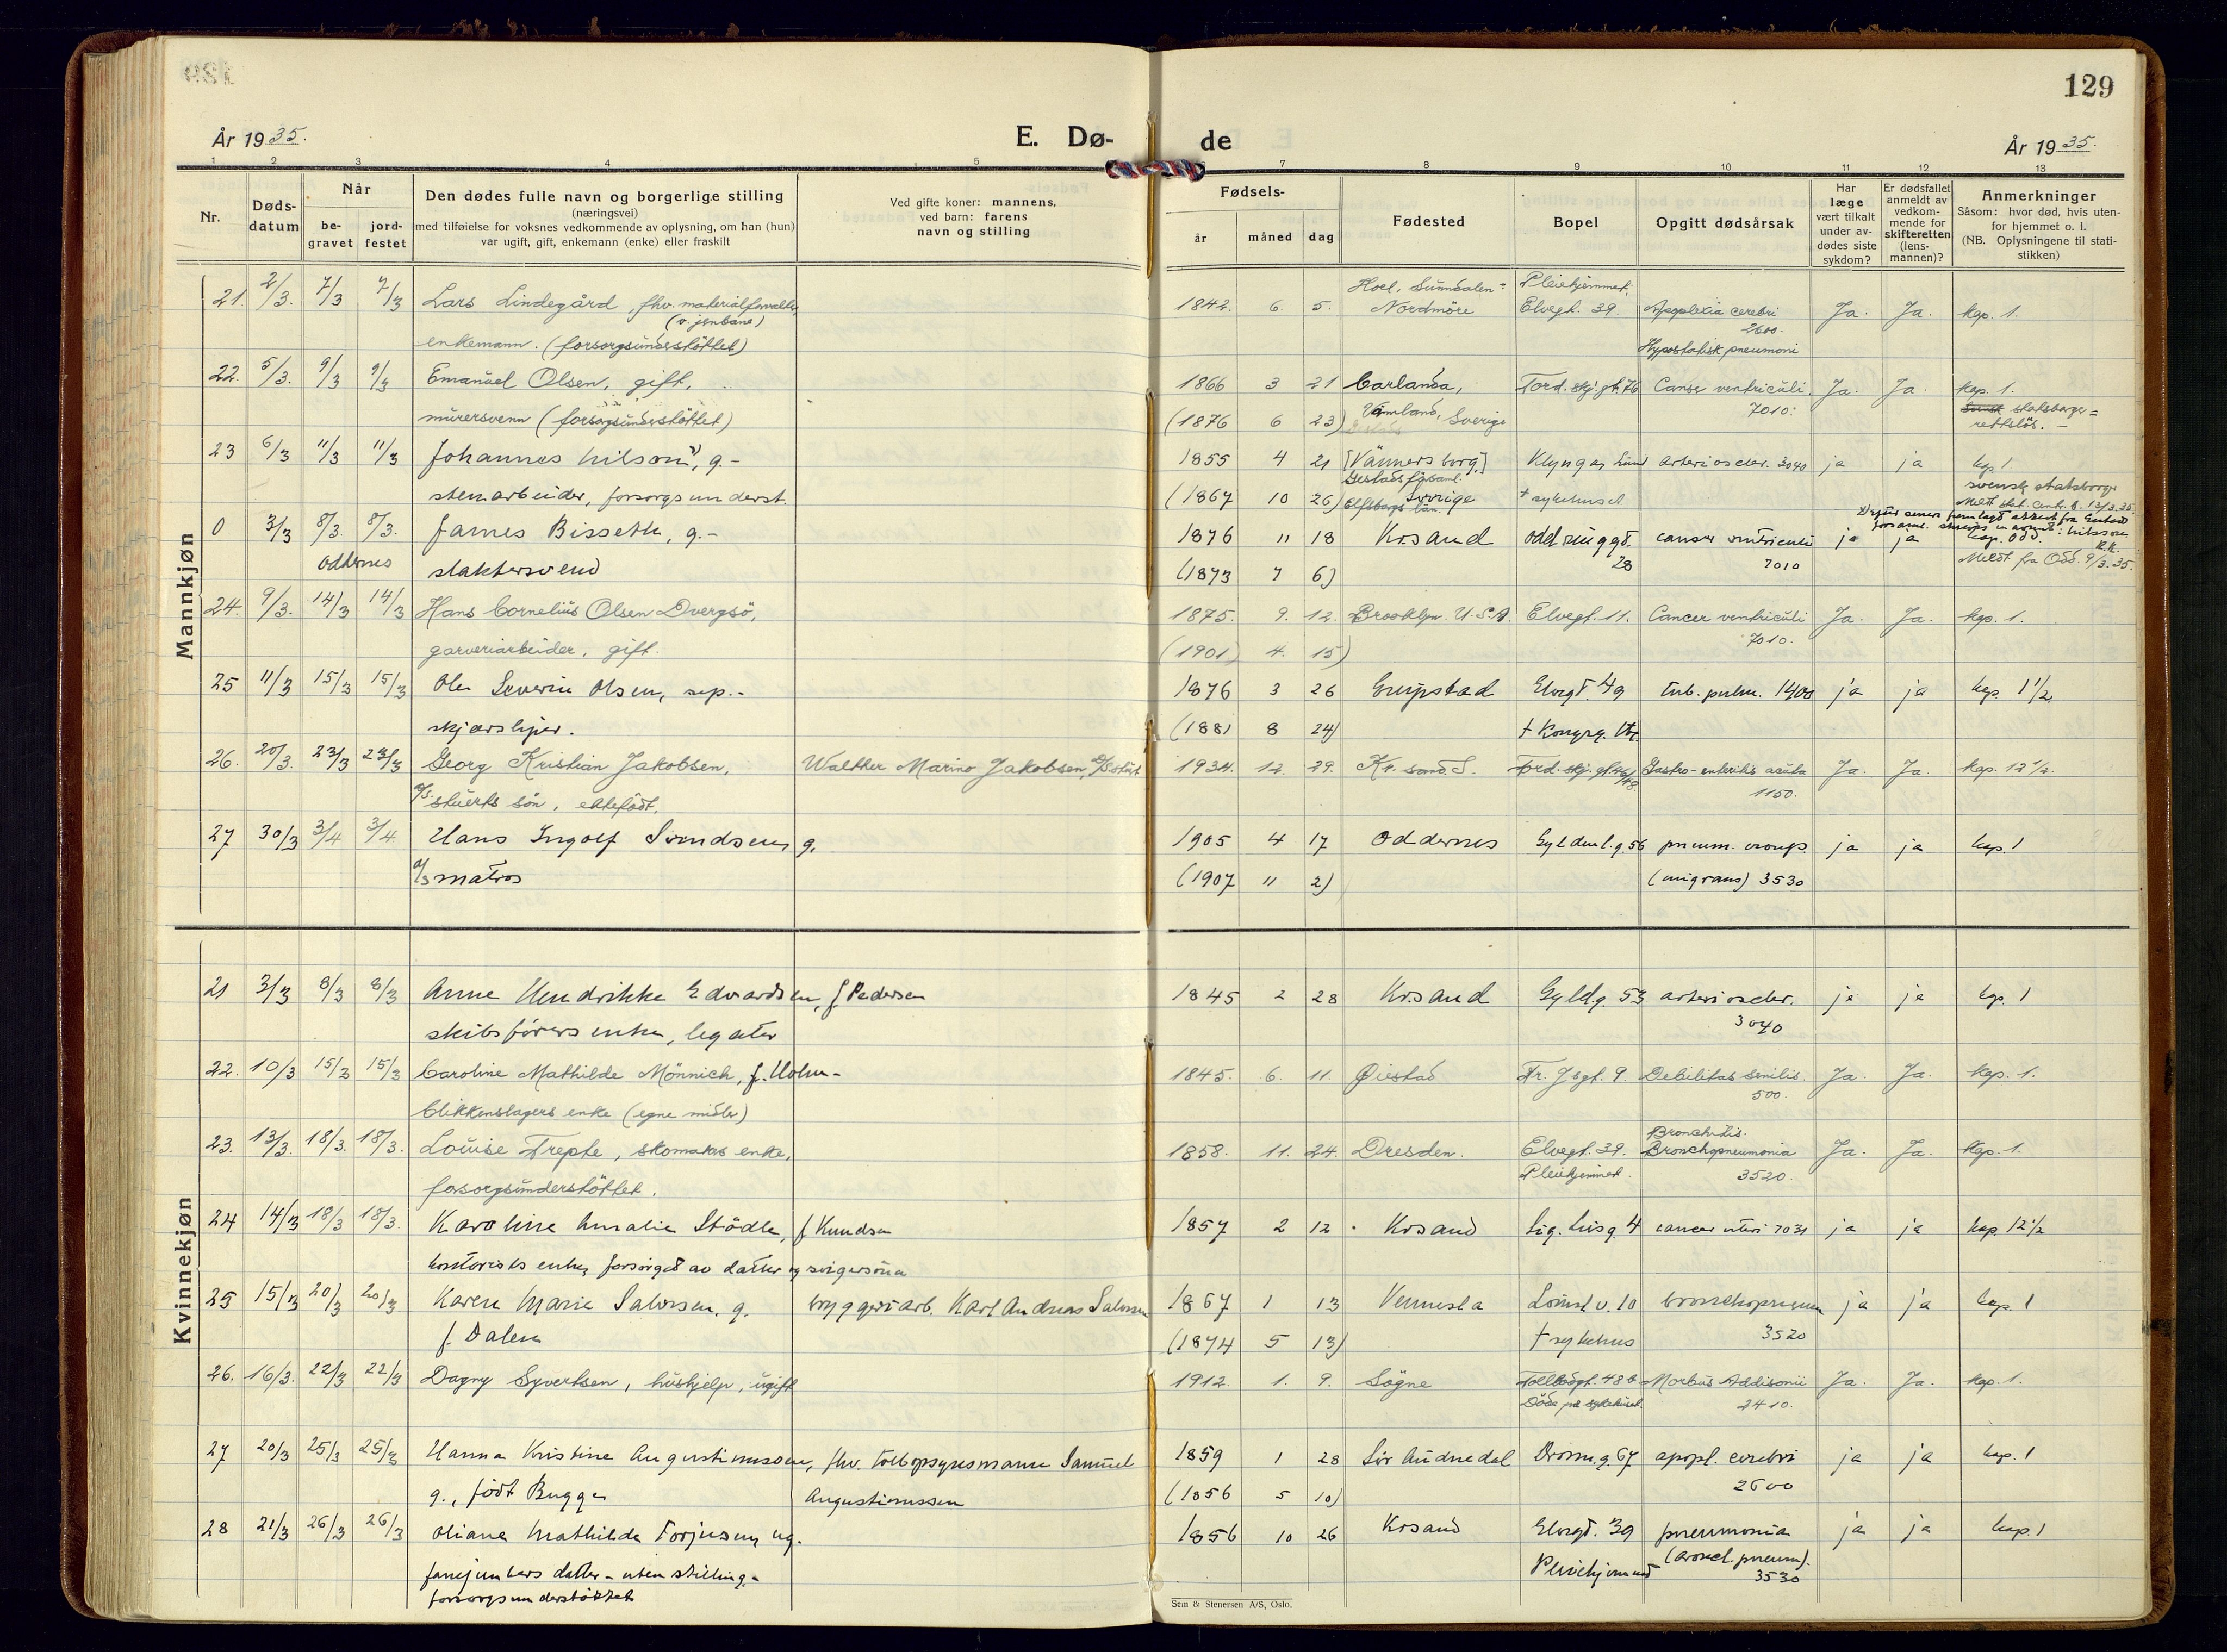 129
År 1935.
E. Dø-
de
År 1935.
1 2 3 4 5 7 8 9 10 11 12 13
Nr.
Døds-
datum
Når
be-
gravet
jord-
festet
Den dødes fulle navn og borgerlige stilling
(næringsvei)
med tilføielse for voksnes vedkommende av oplysning, om han (hun)
var ugift, gift, enkemann (enke) eller fraskilt
Ved gifte koner: mannens,
ved barn: farens
navn og stilling
Fødsels-
år måned dag
Fødested
Bopel
Opgitt dødsårsak
Har
læge
vært tilkalt
under av-
dødes siste
sykdom?
Er dødsfallet
anmeldt av
vedkom-
mende for
skifteretten
(lens-
mannen)?
Anmerkninger
Såsom: hvor død, hvis uten-
for hjemmet o. l.
(NB. Oplysningene til stati-
stikken)
Mannkjøn
21. 2/3. 7/3 7/3 Lars Lindegård, fhv. materialforvalter
(v. jernbane)
enkemann. (forsorgsunderstöttet)
1842. 6. 5. Hoel, Sunndalen-
Nordmöre
Pleiehjemmet.
Elvegt. 39. Apoplexia cerebri
2600.
Hypostatisk pneumoni
Ja. Ja. kap. 1.
22. 5/3. 9/3 9/3 Emanuel Olsen, gift,
murersvenn (forsorgsunderstöttet)
1866 3 21 Carlanda,
(1876 6 23) Värmland, Sverige
Tord. skj. gt. 76 Canser ventriculi.
7010.
Ja. Ja. kap. 1.
statsborger=
rettslös. -
23 6/3 11/3 11/3 Johannes Nilson, g.-
stenarbeider, forsorgsunderst.
1855 4 21 [Vänersborg]
Gestads församl.
(1867 10 26) Elfsborgs län. Sverige
† sykehuset
arterioscler. 3040 ja ja kap 1
svensk statsborger
Meldt stat. Centr. b. 13/3.35.
0 3/3 8/3. 8/3. James Bisseth, g.-
Oddernes slaktersvend
1876 11 18 Krsand
(1873 7 6)
28
canser ventriculi
7010
ja ja kap. Odd.
Meldt fra Odd. 9/3.35.
24. 9/3. 14/3 14/3 Hans Cornelius Olsen Dvergsö,
garveriarbeider, gift.
1875. 9. 12. Brooklyn. U.S.A. Elvegt. 11. Cancer ventriculi
(1901) 4. 15) 7010.
Ja. Ja. kap. 1.
25 11/3 15/3 15/3 Ole Severin Olsen, sep.-
skjærsliper.
1876 3 26 Greipstad Elvegt 49 tub. pulm. 1400 ja ja kap. 1 1/2
(1881 8 24)
26. 20/3. 23/3 23/3 Georg Kristian Jakobsen,
stuerts sön, ektefödt.
Walther Marino Jakobsen,
1934. 12. 29. Kr. sand. S. Tord. skj. gt. 46/48 Gastro-enteritis acuta
1150.
Ja. Ja. kap. 12 1/2.
27 30/3 3/4 3/4 Hans Ingolf Svendsen g.
matros
1905 4 17 Oddernes Gyldenl. g. 56 pneum. croup.
(1907 11 2) (migrans) 3530
ja ja kap. 1
Kvinnekjøn
21 3/3 8/3 8/3 Anne Hendrikke Edvardsen, f Pedersen
skibsförers enke, legater
1845 2 28 Krsand Gyld.g. 53 arterioscler.
3040
ja ja kap. 1
22. 10/3 15/3 15/3 Caroline Mathilde Mönnich, f. Holm-
blikkenslagers enke (egne midler)
1845. 6. 11. Øiestad Fr. Jsgt. 9. Debilitas senilis.
500.
Ja. Ja. kap. 1.
23. 13/3. 18/3. 18/3. Louise Trepte, skomakers enke,
forsorgsunderstöttet.
1858. 11. 24. Dresden. Elvegt. 39.
Pleiehjemmet.
Bronchitis.
Bronchopneumonia
3520.
Ja. Ja. kap. 1.
24 14/3 18/3 18/3. Karoline Amalie Stödle, f Knudsen
kontorists enke, forsörget av datter og svigersönn
1857 2 12 Krsand cancer uteri 7031 ja ja kap. 12 1/2
25 15/3 20/3 20/3 Karen Marie Salvesen, g.
f. Dalen
bryggeriarb. Karl Andreas Salvesen
1867 1 13 Vennesla bronchopneum
(1874 5 13) † sykehus 3520
ja ja kap. 1
26. 16/3. 22/3 22/3 Dagny Syvertsen, hushjelp, ugift
1912. 1. 9. Sögne Tollbodgt. 48b Morbus Addisonii
Döde på sykehuset. 2410.
Ja. Ja. kap. 1.
27 20/3 25/3 25/3 Hanna Kristine Augustinussen, fhv. tollopsynsmann Samuel
g., födt Bugge Augustinussen
1859 1 28 Sör Audnedal Dronn.g. 67 apopl. cerebri
(1856 5 10) 2600
ja ja kap. 1
28 21/3 26/3 26/3 Oliane Mathilde Torjusen, ug.
fanejunkers datter - uten stilling -
forsorgsunderstöttet
1856 10 26 Krsand Elvegt. 39 pneumonia
Pleiehjemmet (bronch. pneum).
3530
ja ja kap. 1
Sem & Stenersen A/S, Oslo.